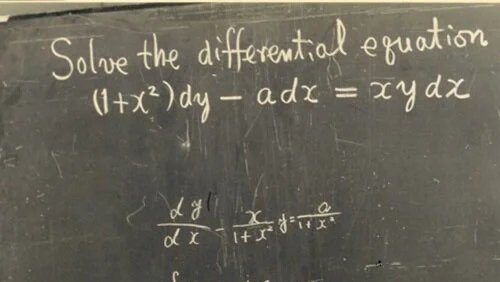 Solve the differential equation
(1+x²)dy – adx = xydx
dy/dx - x/(1+x²) y = a/(1+x²)